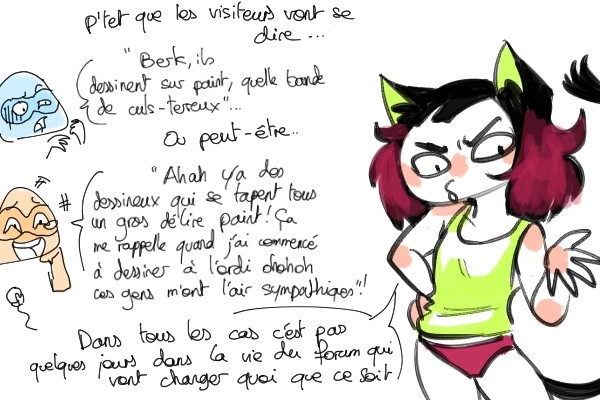 p'tet que les visiteurs vont se
dire...
"Berk, ils
dessinent sur paint, quelle bande
de culs-terreux"...
Ou peut-être..
"Ahah y'a des
dessineux qui se tapent tous
un gros délire paint! Ça
me rappelle quand j'ai commencé
à dessiner à l'ordi ohohoh
ces gens m'ont l'air sympathiques"!
Dans tous les cas c'est pas
quelques jours dans la vie du forum qui
vont changer quoi que ce soit